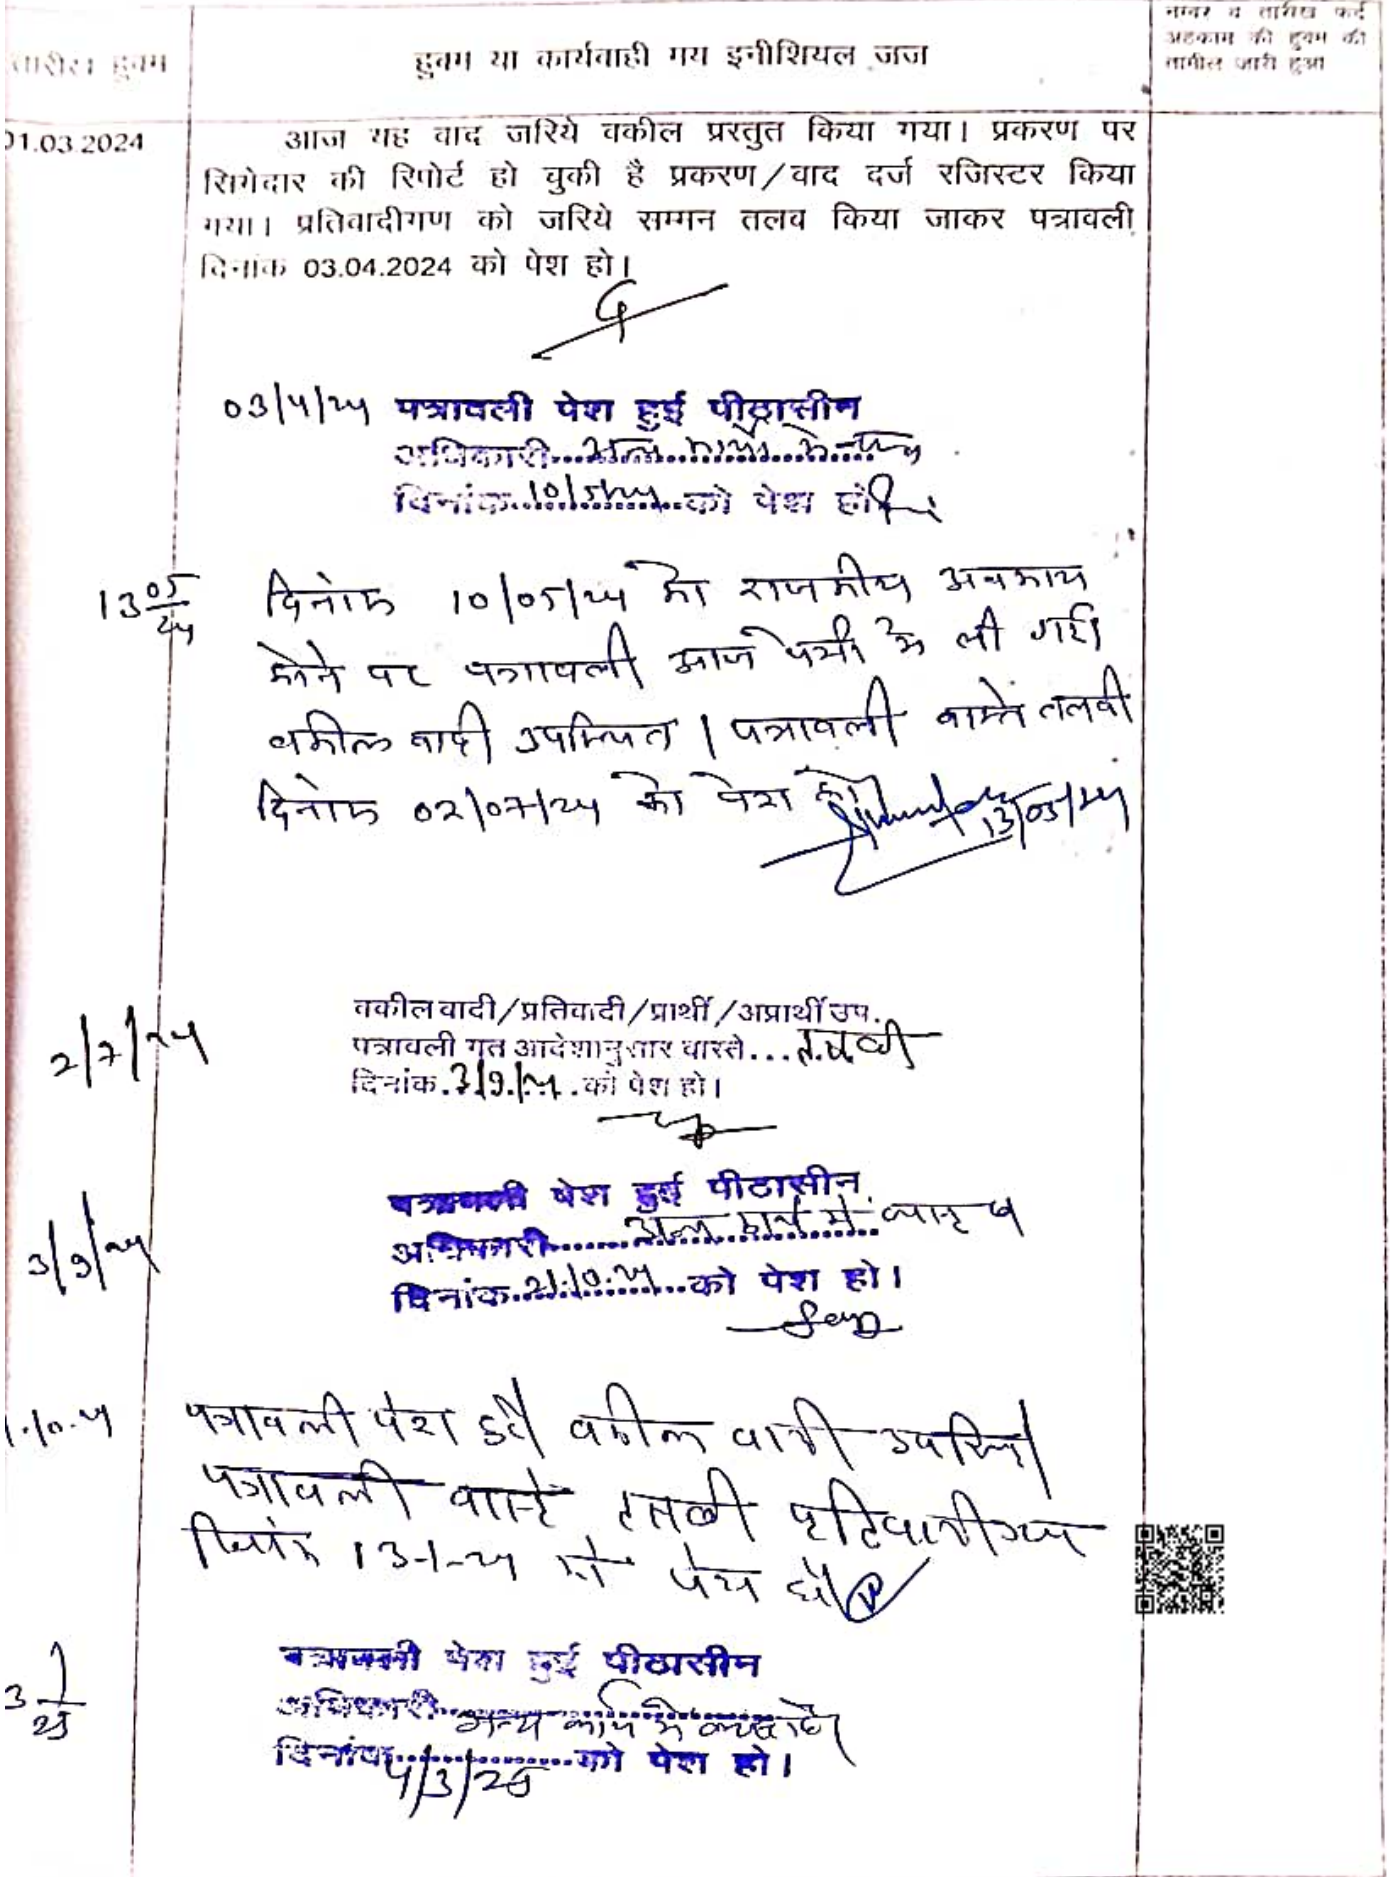 तारीख हुक्म
हुक्म या कार्यवाही मय इनीशियल जज
नम्बर व तारीख फर्द
अहकाम की हुक्म की
तामील जारी हुआ
01.03.2024
आज यह वाद जरिये वकील प्रस्तुत किया गया। प्रकरण पर
सिगेदार की रिपोर्ट हो चुकी है प्रकरण/वाद दर्ज रजिस्टर किया
गया। प्रतिवादीगण को जरिये सम्मन तलब किया जाकर पत्रावली
दिनांक 03.04.2024 को पेश हो।
03/4/24 पत्रावली पेश हुई पीठासीन
अधिकारी अन्य कार्य में व्यस्त
दिनांक 10/5/24 को पेश हो
13 05/24
दिनांक 10/05/24 को राजकीय अवकाश
होने पर पत्रावली आज पेशी में ली गई।
वकील वादी उपस्थित। पत्रावली वास्ते तलबी
दिनांक 02/07/24 को पेश हो
13/05/24
2/7/24
वकील वादी/प्रतिवादी/प्रार्थी/अप्रार्थी उप.
पत्रावली गत आदेशानुसार वास्ते...तलबी
दिनांक.3/9/24.को पेश हो।
3/9/24
पत्रावली पेश हुई पीठासीन
अधिकारी अन्य कार्य में व्यस्त
दिनांक 21.10.24 को पेश हो।
.10.24
पत्रावली पेश हुई वकील वादी उपस्थित।
पत्रावली वास्ते तलबी प्रतिवादीगण
दिनांक को पेश हो।
3 1/25
पत्रावली पेश हुई पीठासीन
अधिकारी अन्य कार्य में व्यस्त है।
दिनांक 4/3/25 को पेश हो।